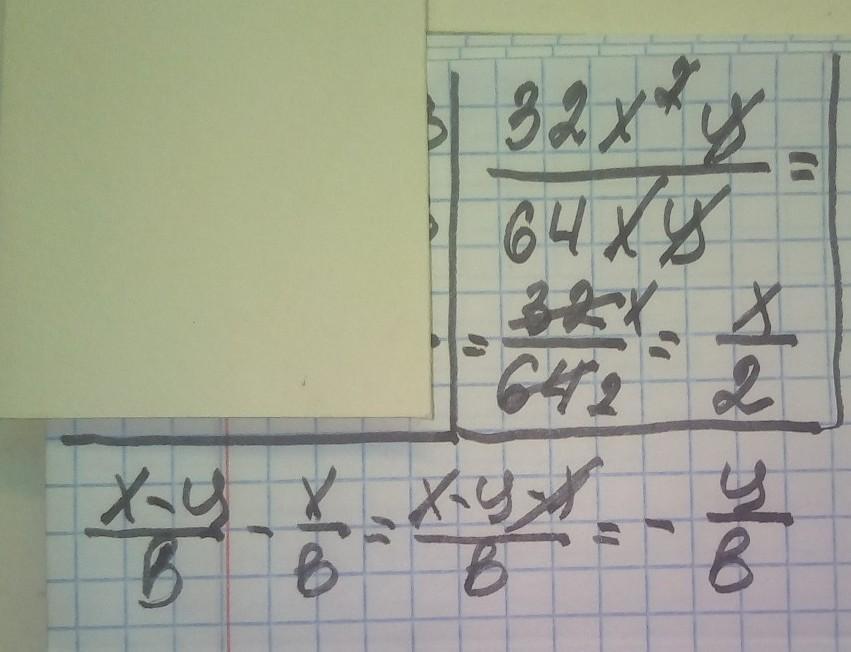 32x²y / 64xy =
= 32x / 64 2 = x / 2
x-y / в - x / в = x-y-x / в = - y / в